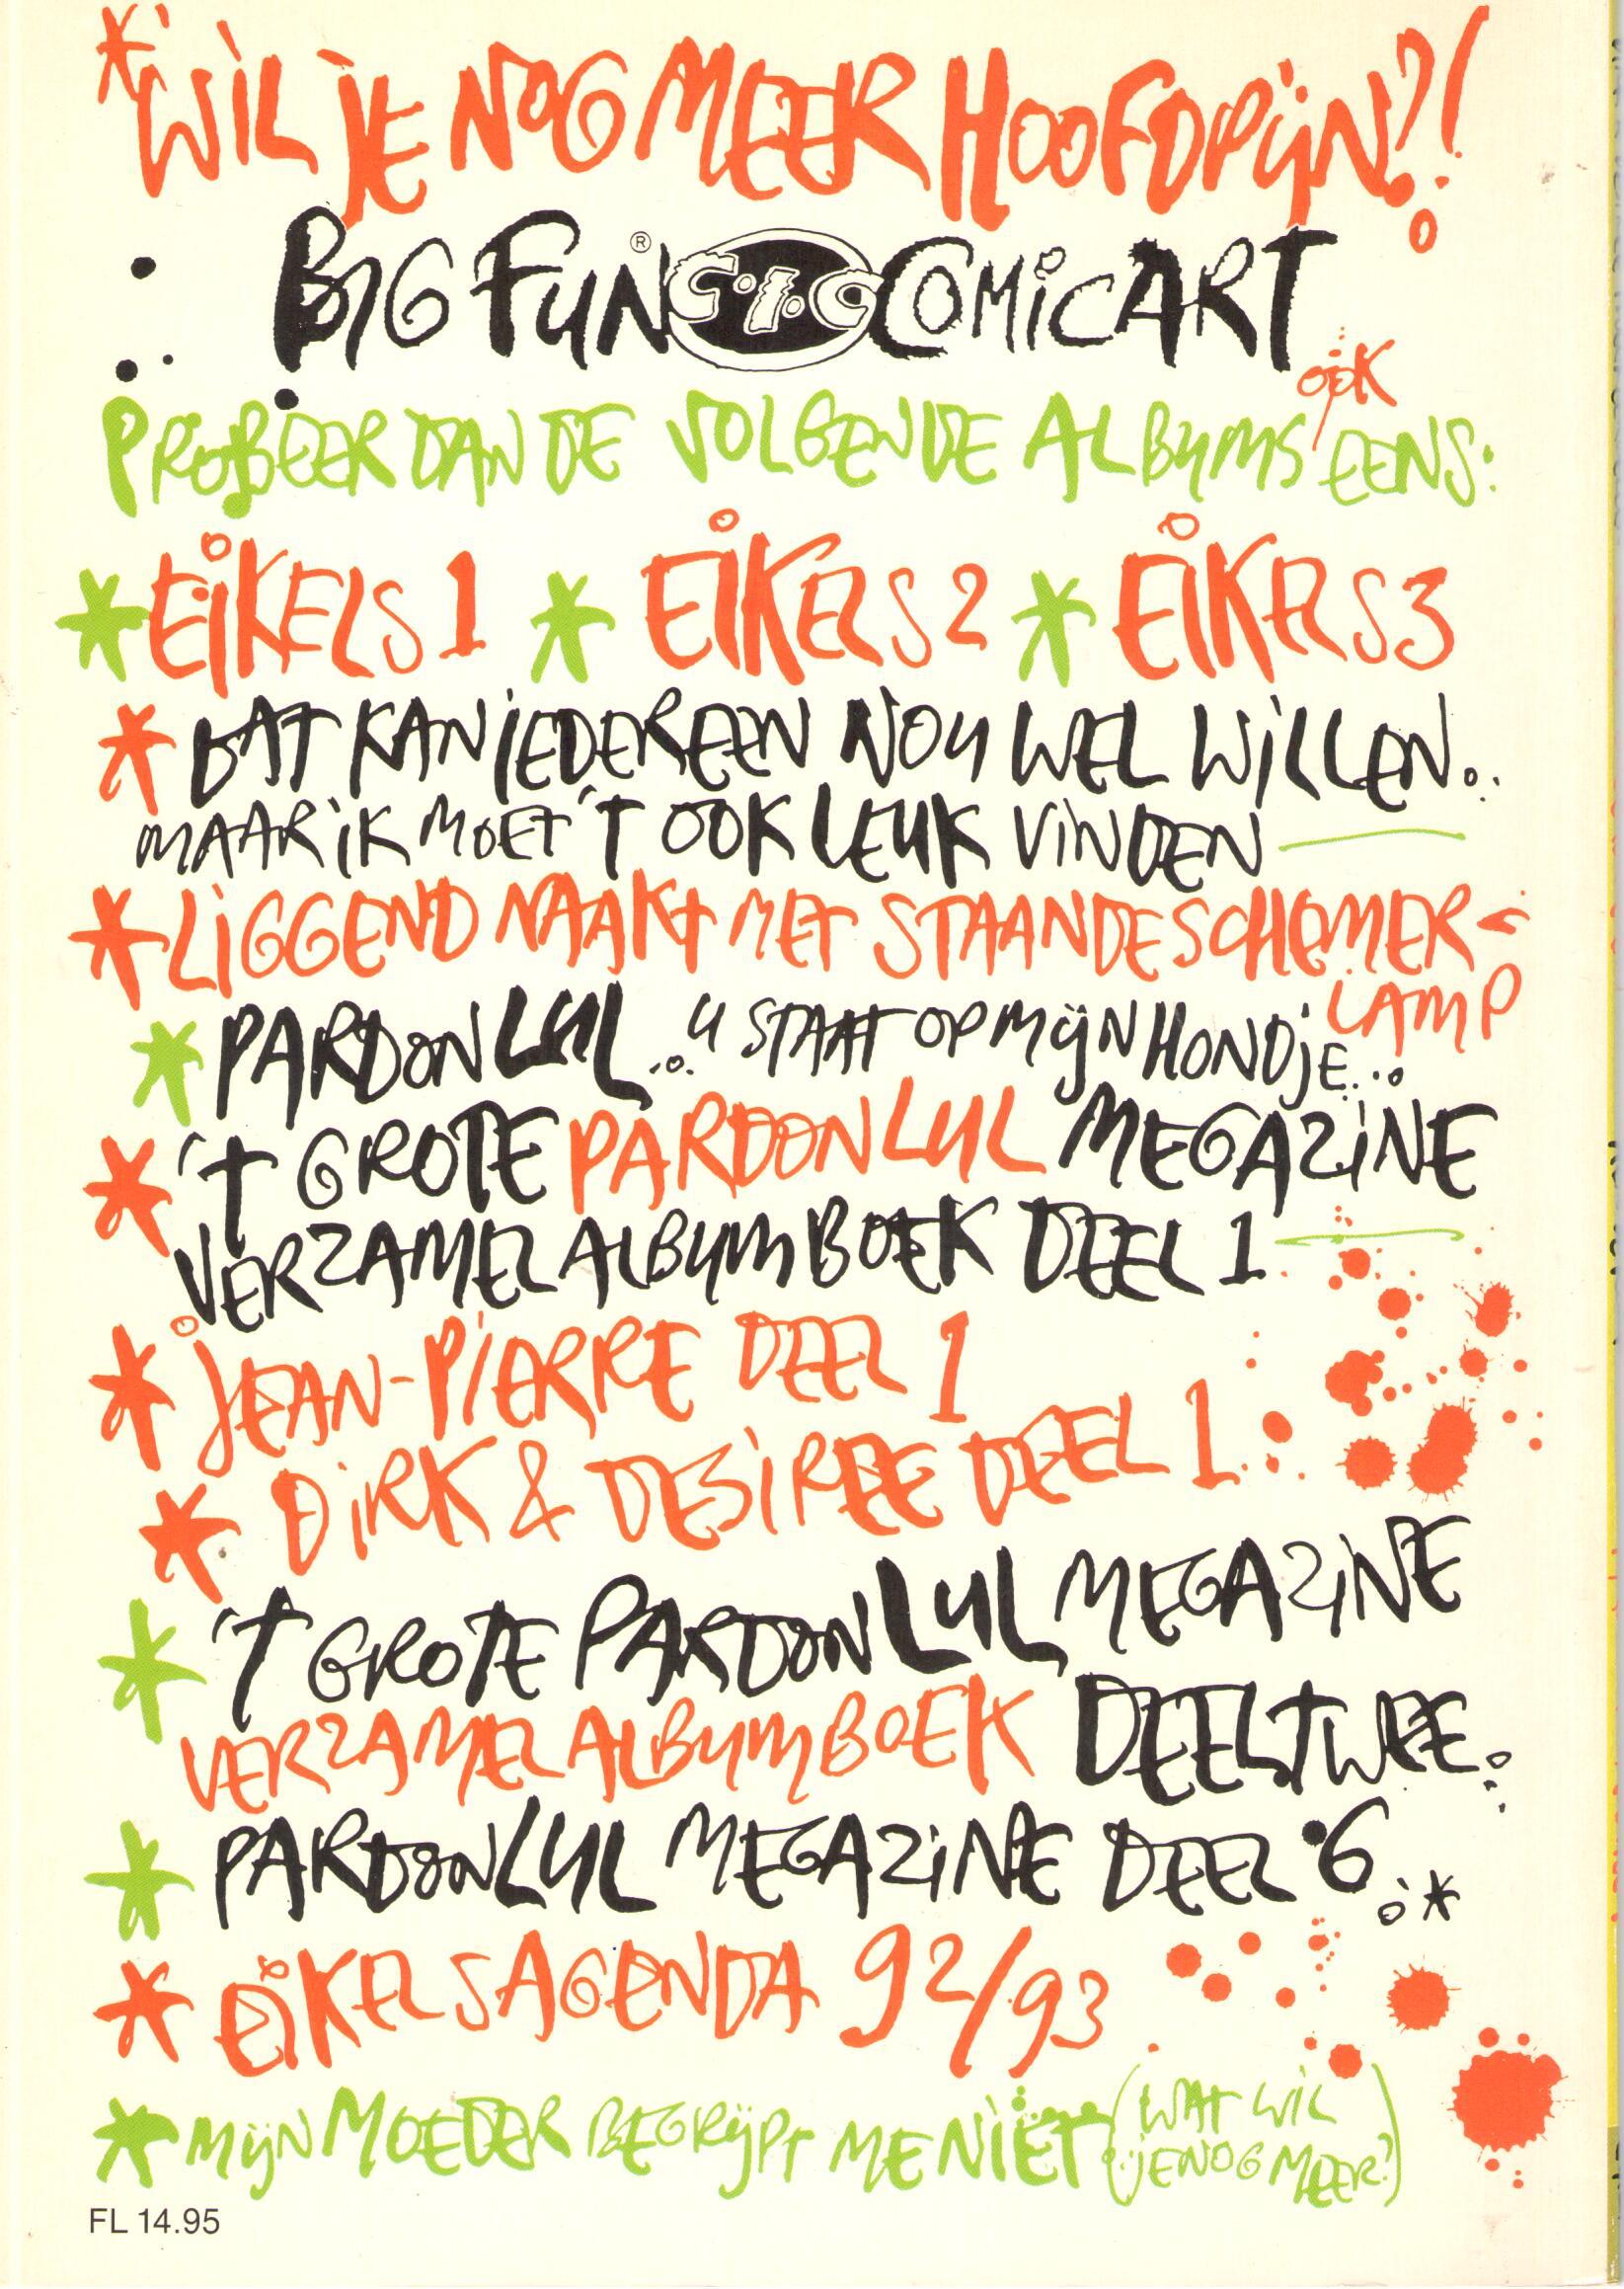 * WIL JE NOG MEER HOOFDPIJN?!
BIG FUN ® C.I.C COMICART
PROBEER DAN DE VOLGENDE ALBUMS OOK EENS:
* EIKELS 1 * EIKELS 2 * EIKELS 3
* DAT KAN IEDEREEN NOU WEL WILLEN..
MAAR IK MOET 'T OOK LEUK VINDEN
* LIGGEND NAAKT MET STAANDE SCHEMER-
LAMP
* PARDON LUL... U STAAT OP MIJN HONDJE...
* 'T GROTE PARDON LUL MEGAZINE
VERZAMEL ALBUM BOEK DEEL 1
* JEAN-PIERRE DEEL 1
* DIRK & DESIREE DEEL 1
* 'T GROTE PARDON LUL MEGAZINE
VERZAMEL ALBUM BOEK DEEL TWEE
* PARDON LUL MEGAZINE DEEL 6 *
* EIKELSAGENDA 92/93
* MIJN MOEDER BEGRIJPT ME NIET (WAT WIL
JE NOG MEER?)
FL 14.95